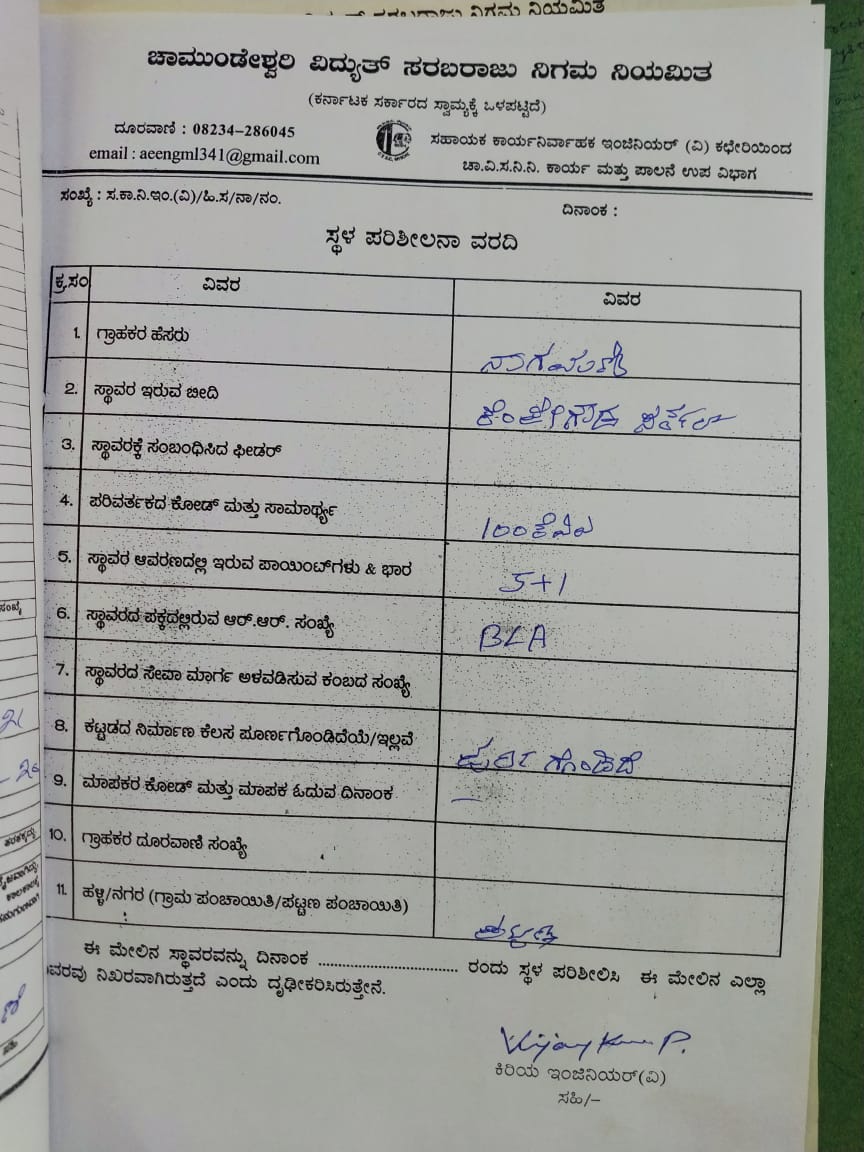 ಸರಬರಾಜು ನಿಗಮ ನಿಯಮಿತ
ಚಾಮುಂಡೇಶ್ವರಿ ವಿದ್ಯುತ್ ಸರಬರಾಜು ನಿಗಮ ನಿಯಮಿತ
(ಕರ್ನಾಟಕ ಸರ್ಕಾರದ ಸ್ವಾಮ್ಯಕ್ಕೆ ಒಳಪಟ್ಟಿದೆ)
ದೂರವಾಣಿ : 08234-286045
email : aeengml341@gmail.com
ಸಹಾಯಕ ಕಾರ್ಯನಿರ್ವಾಹಕ ಇಂಜಿನಿಯರ್ (ವಿ) ಕಛೇರಿಯಿಂದ
ಚಾ.ವಿ.ಸ.ನಿ.ನಿ. ಕಾರ್ಯ ಮತ್ತು ಪಾಲನೆ ಉಪ ವಿಭಾಗ
ಸಂಖ್ಯೆ : ಸ.ಕಾ.ನಿ.ಇಂ.(ವಿ)/ಹಿ.ಸ/ನಾ/ನಂ.
ದಿನಾಂಕ :
ಸ್ಥಳ ಪರಿಶೀಲನಾ ವರದಿ
ಕ್ರ.ಸಂ ವಿವರ ವಿವರ
1. ಗ್ರಾಹಕರ ಹೆಸರು
2. ಸ್ಥಾವರ ಇರುವ ಬೀದಿ ಕೆಂಪೇಗೌಡ ಸರ್ಕಲ್
3. ಸ್ಥಾವರಕ್ಕೆ ಸಂಬಂಧಿಸಿದ ಫೀಡರ್
4. ಪರಿವರ್ತಕದ ಕೋಡ್ ಮತ್ತು ಸಾಮಾರ್ಥ್ಯ 100ಕೆವಿಎ
5. ಸ್ಥಾವರ ಆವರಣದಲ್ಲಿ ಇರುವ ಪಾಯಿಂಟ್‌ಗಳು & ಭಾರ 5+1
6. ಸ್ಥಾವರದ ಪಕ್ಕದಲ್ಲಿರುವ ಆರ್.ಆರ್. ಸಂಖ್ಯೆ BLA
7. ಸ್ಥಾವರದ ಸೇವಾ ಮಾರ್ಗ ಅಳವಡಿಸುವ ಕಂಬದ ಸಂಖ್ಯೆ
8. ಕಟ್ಟಡದ ನಿರ್ಮಾಣ ಕೆಲಸ ಪೂರ್ಣಗೊಂಡಿದೆಯೆ/ಇಲ್ಲವೆ ಪೂರ್ಣಗೊಂಡಿದೆ
9. ಮಾಪಕರ ಕೋಡ್ ಮತ್ತು ಮಾಪಕ ಓದುವ ದಿನಾಂಕ –
10. ಗ್ರಾಹಕರ ದೂರವಾಣಿ ಸಂಖ್ಯೆ
11. ಹಳ್ಳಿ/ನಗರ (ಗ್ರಾಮ ಪಂಚಾಯಿತಿ/ಪಟ್ಟಣ ಪಂಚಾಯಿತಿ)
ಈ ಮೇಲಿನ ಸ್ಥಾವರವನ್ನು ದಿನಾಂಕ .................................. ರಂದು ಸ್ಥಳ ಪರಿಶೀಲಿಸಿ ಈ ಮೇಲಿನ ಎಲ್ಲಾ
ವರವು ನಿಖರವಾಗಿರುತ್ತದೆ ಎಂದು ದೃಢೀಕರಿಸಿರುತ್ತೇನೆ.
Vijay Kumar P.
ಕಿರಿಯ ಇಂಜಿನಿಯರ್(ವಿ)
ಸಹಿ/-